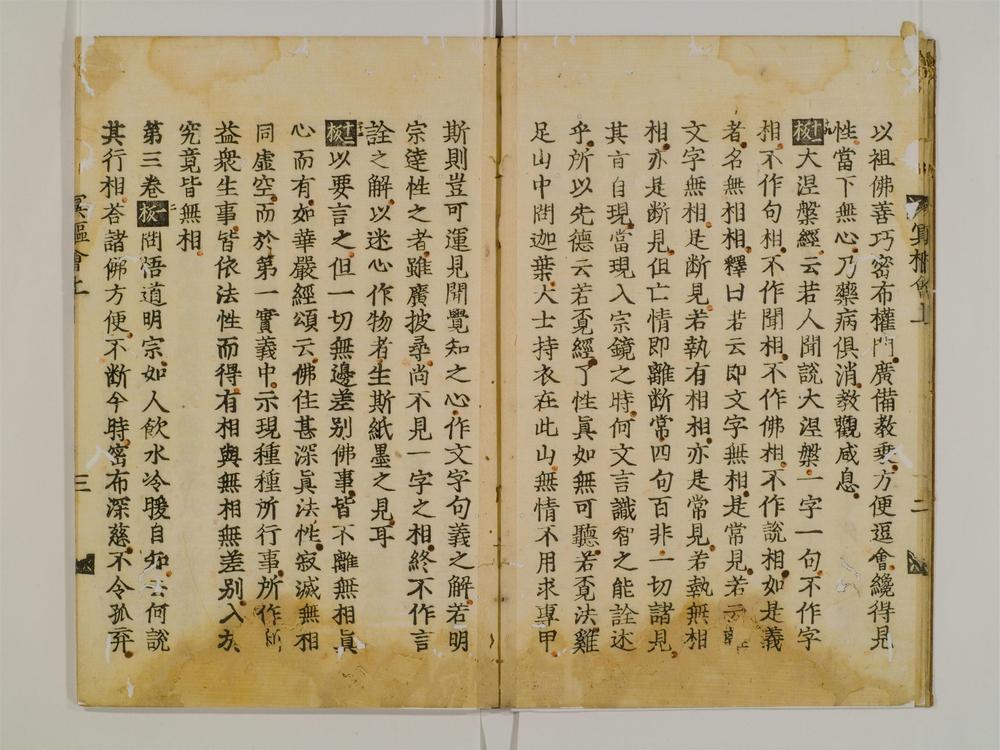 以祖佛善巧密布權門廣備教乗方便逗會纔得見
性當下無心乃藥病俱消教觀咸息
十板大涅槃經云若人聞說大涅槃一字一句不作字
相不作句相不作聞相不作佛相不作說相如是義
者名無相相釋曰若云即文字無相是常見若云離
文字無相是断見若執有相相亦是常見若執無相
相亦是断見但亡情即離断常四句百非一切諸見
其旨自現當現入宗鏡之時何文言識智之能詮述
乎所以先德云若覔經了性眞如無可聽若覔法雞
足山中問迦葉大士持衣在此山無情不用求專甲
斯則豈可運見聞覺知之心作文字句義之解若明
宗達性之者雖廣披尋尚不見一字之相終不作言
詮之解以迷心作物者生斯紙墨之見耳
十一板以要言之但一切無邊差别佛事皆不離無相眞
心而有如華嚴經頌云佛住甚深眞法性寂滅無相
同虛空而於第一實義中示現種種所行事所作
益衆生事皆依法性而得有相與無相無差别入於
究竟皆無相
第三卷一板問悟道明宗如人飲水冷暖自知云何說
其行相荅諸佛方便不断今時密布深慈不令孤弃
冥樞會上
二
三